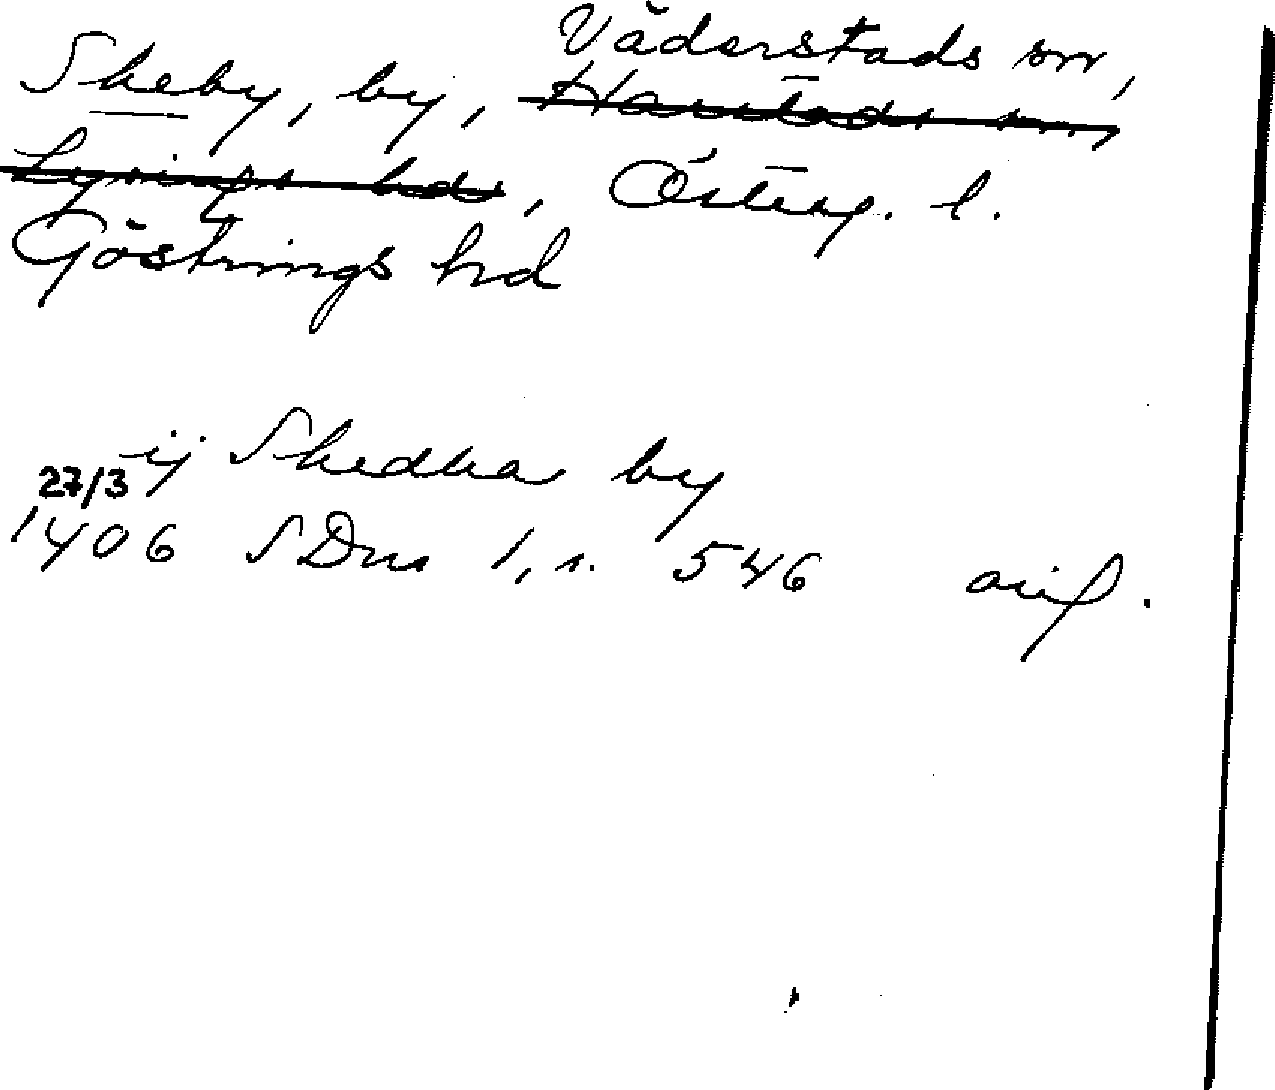 Väderstads sn,
Skeby, by, Harstads sn,
Lysings hds, Österg. l.
Göstrings hd
ij Skedba by
27/3
1406 SDns 1, s. 546 avsk.